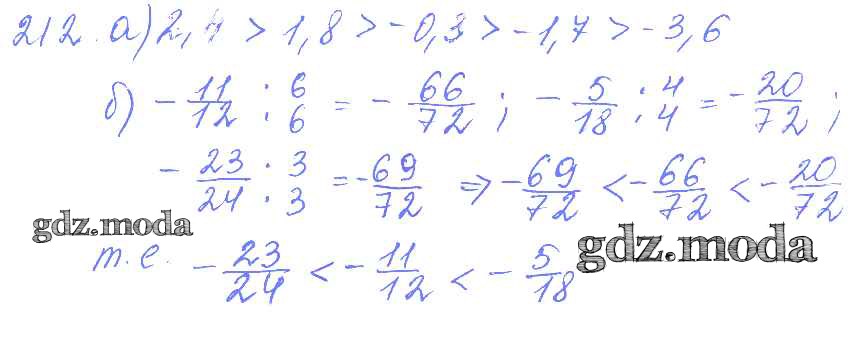 212. а) 2,4 > 1,8 > -0,3 > -1,7 > -3,6
б) - 11/12 · 6/6 = - 66/72 ; - 5/18 · 4/4 = - 20/72 ;
- 23/24 · 3/3 = - 69/72 => - 69/72 < - 66/72 < - 20/72
gdz.moda
т.е. - 23/24 < - 11/12 < - 5/18
gdz.moda